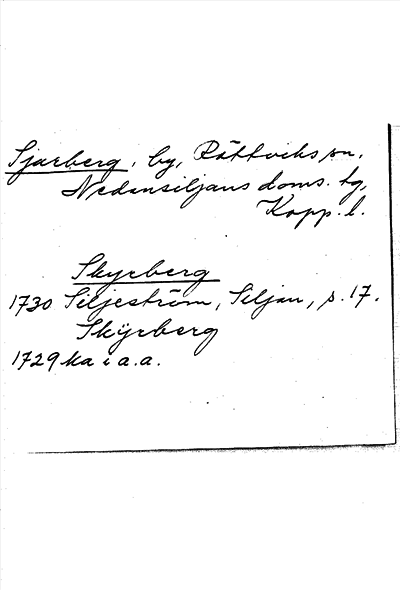 Sjurberg, by, Rättviks sn,
Nedansiljans doms. tg,
Kopp. l.
Skyrberg
1730 Siljeström, Siljan, s. 17.
Skÿrberg
1729 ka i a.a.